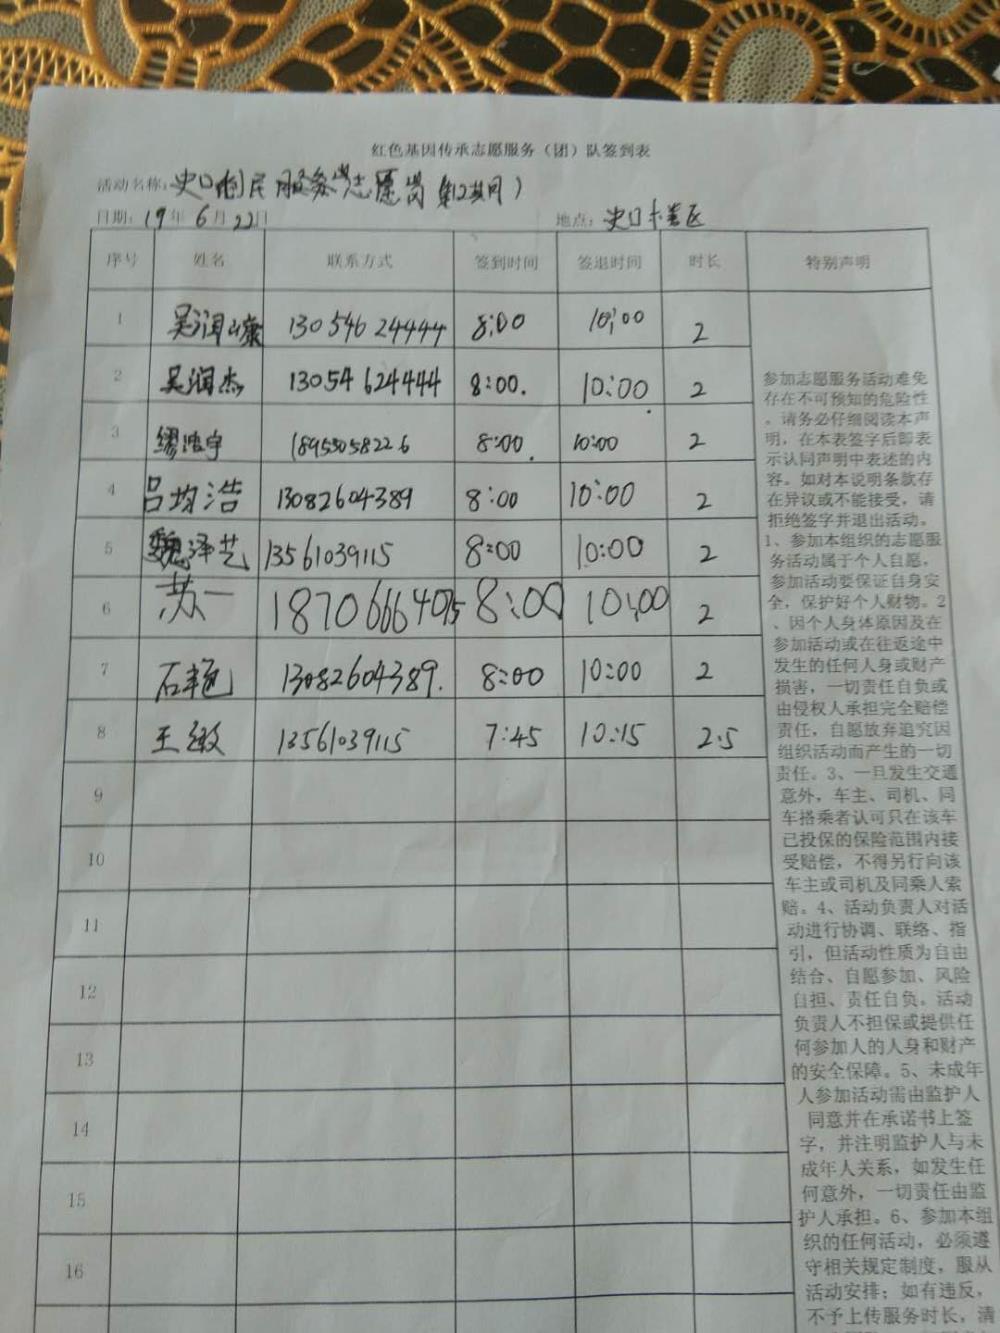 红色基因传承志愿服务（团）队签到表
活动名称：史口 民服务 志愿岗（第12期）
日期：19年6月22日 地点：史口 区
序号 姓名 联系方式 签到时间 签退时间 时长 特别声明
1 吴润 13054624444 8:00 10:00 2
2 吴润杰 13054624444 8:00. 10:00 2
3 缪浩宇 18955058226 8:00 10:00 2
4 吕均浩 13082604389 8:00 10:00 2
5 魏泽艺 13561039115 8:00 10:00 2
6 苏一 18706664075 8:00 10:00 2
7 石艳 13082604389. 8:00 10:00 2
8 王敏 13561039115 7:45 10:15 2.5
9
10
11
12
13
14
15
16
参加志愿服务活动难免
存在不可预知的危险性
，请务必仔细阅读本声
明，在本表签字后即表
示认同声明中表述的内
容。如对本说明条款存
在异议或不能接受，请
拒绝签字并退出活动。
1、参加本组织的志愿服
务活动属于个人自愿，
参加活动要保证自身安
全，保护好个人财物。2
、因个人身体原因及在
参加活动或在往返途中
发生的任何人身或财产
损害，一切责任自负或
由侵权人承担完全赔偿
责任，自愿放弃追究因
组织活动而产生的一切
责任。3、一旦发生交通
意外，车主、司机、同
车搭乘者认可只在该车
已投保的保险范围内接
受赔偿，不得另行向该
车主或司机及同乘人索
赔。4、活动负责人对活
动进行协调、联络、指
引，但活动性质为自由
结合、自愿参加、风险
自担、责任自负。活动
负责人不担保或提供任
何参加人的人身和财产
的安全保障。5、未成年
人参加活动需由监护人
同意并在承诺书上签
字，并注明监护人与未
成年人关系，如发生任
何意外，一切责任由监
护人承担。6、参加本组
织的任何活动，必须遵
守相关规定制度，服从
活动安排；如有违反，
不予上传服务时长，清